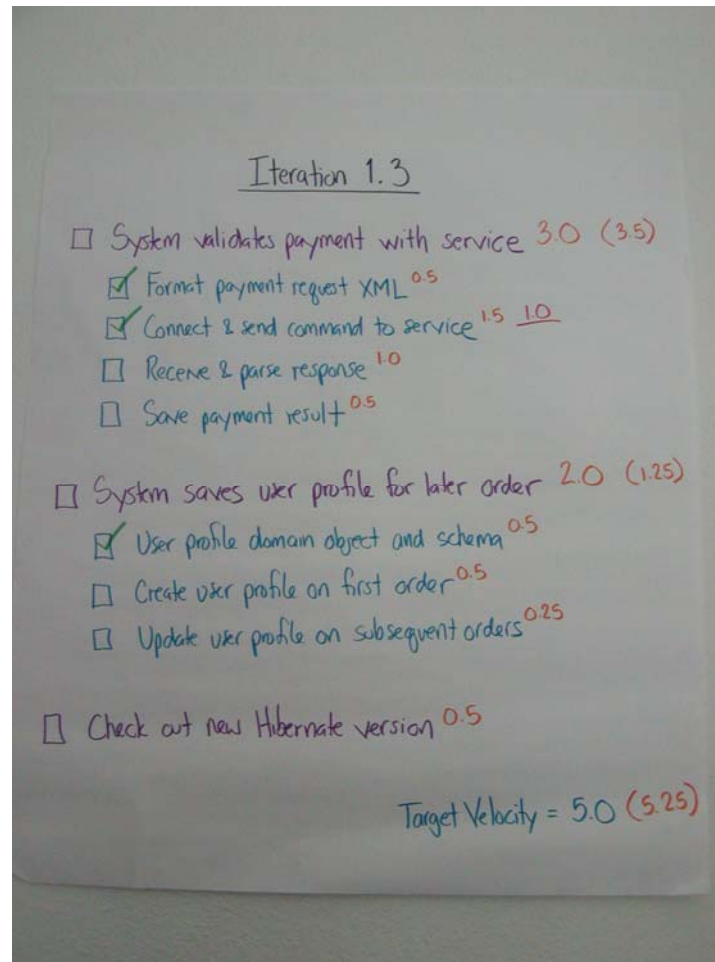 Iteration 1.3
System validates payment with service 3.0 (3.5)
Format payment request XML 0.5
Connect & send command to service 1.5 1.0
Receive & parse response 1.0
Save payment result 0.5
System saves user profile for later order 2.0 (1.25)
User profile domain object and schema 0.5
Create user profile on first order 0.5
Update user profile on subsequent orders 0.25
Check out new Hibernate version 0.5
Target Velocity = 5.0 (5.25)